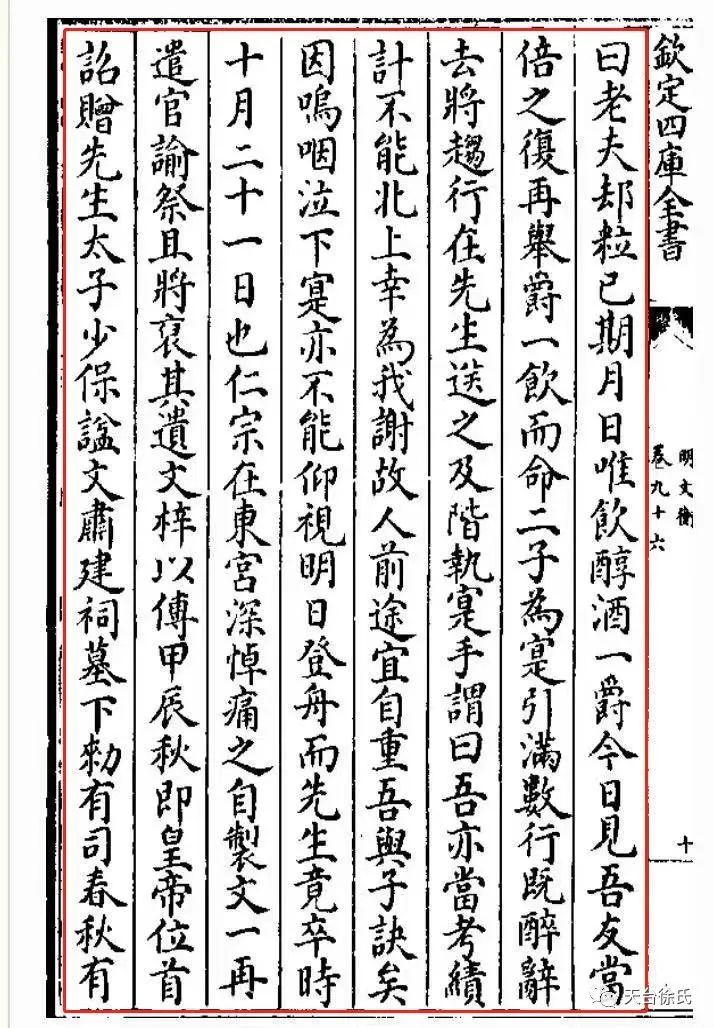 欽定四庫全書
明文衡
卷九十六
十
曰老夫却粒已期月日唯飲醇酒一爵今日見吾友當
倍之復再舉爵一飲而命二子為寔引滿數行既醉辭
去將趨行在先生送之及階執寔手謂曰吾亦當考績
計不能北上幸為我謝故人前途宜自重吾與子訣矣
因嗚咽泣下寔亦不能仰視明日登舟而先生竟卒時
十月二十一日也仁宗在東宮深悼痛之自製文一再
遣官諭祭且將裒其遺文梓以傳甲辰秋即皇帝位首
詔贈先生太子少保諡文肅建祠墓下勑有司春秋有
天台徐氏